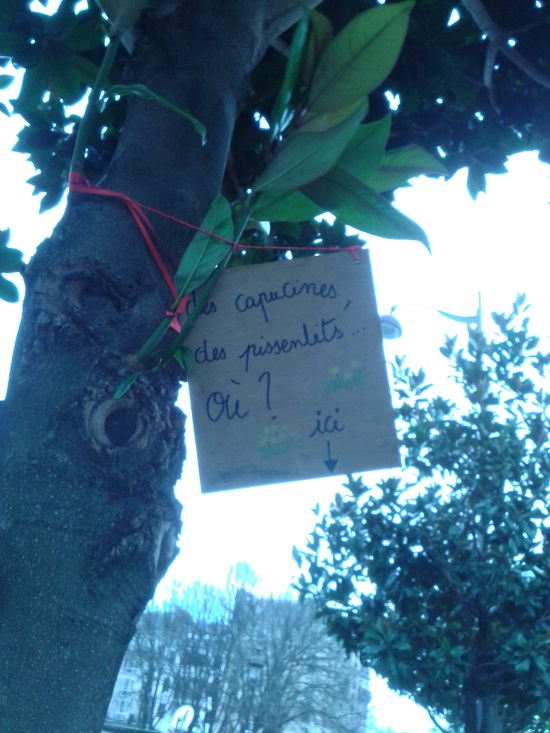 des capucines,
des pissenlits...
Où ?
ici